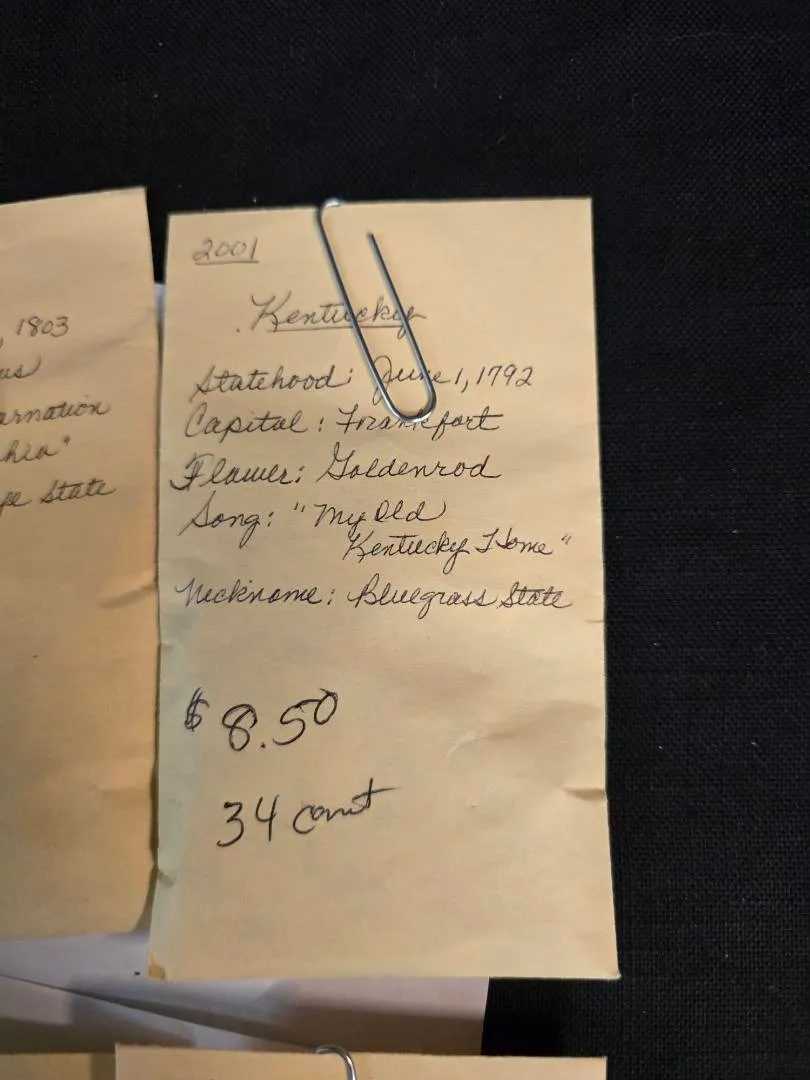 , 1803
us
arnation
hia"
ge State
2001
Kentucky
Statehood: June 1, 1792
Capital: Frankfort
Flower: Goldenrod
Song: "My Old
Kentucky Home"
Nickname: Bluegrass State
$8.50
34 count